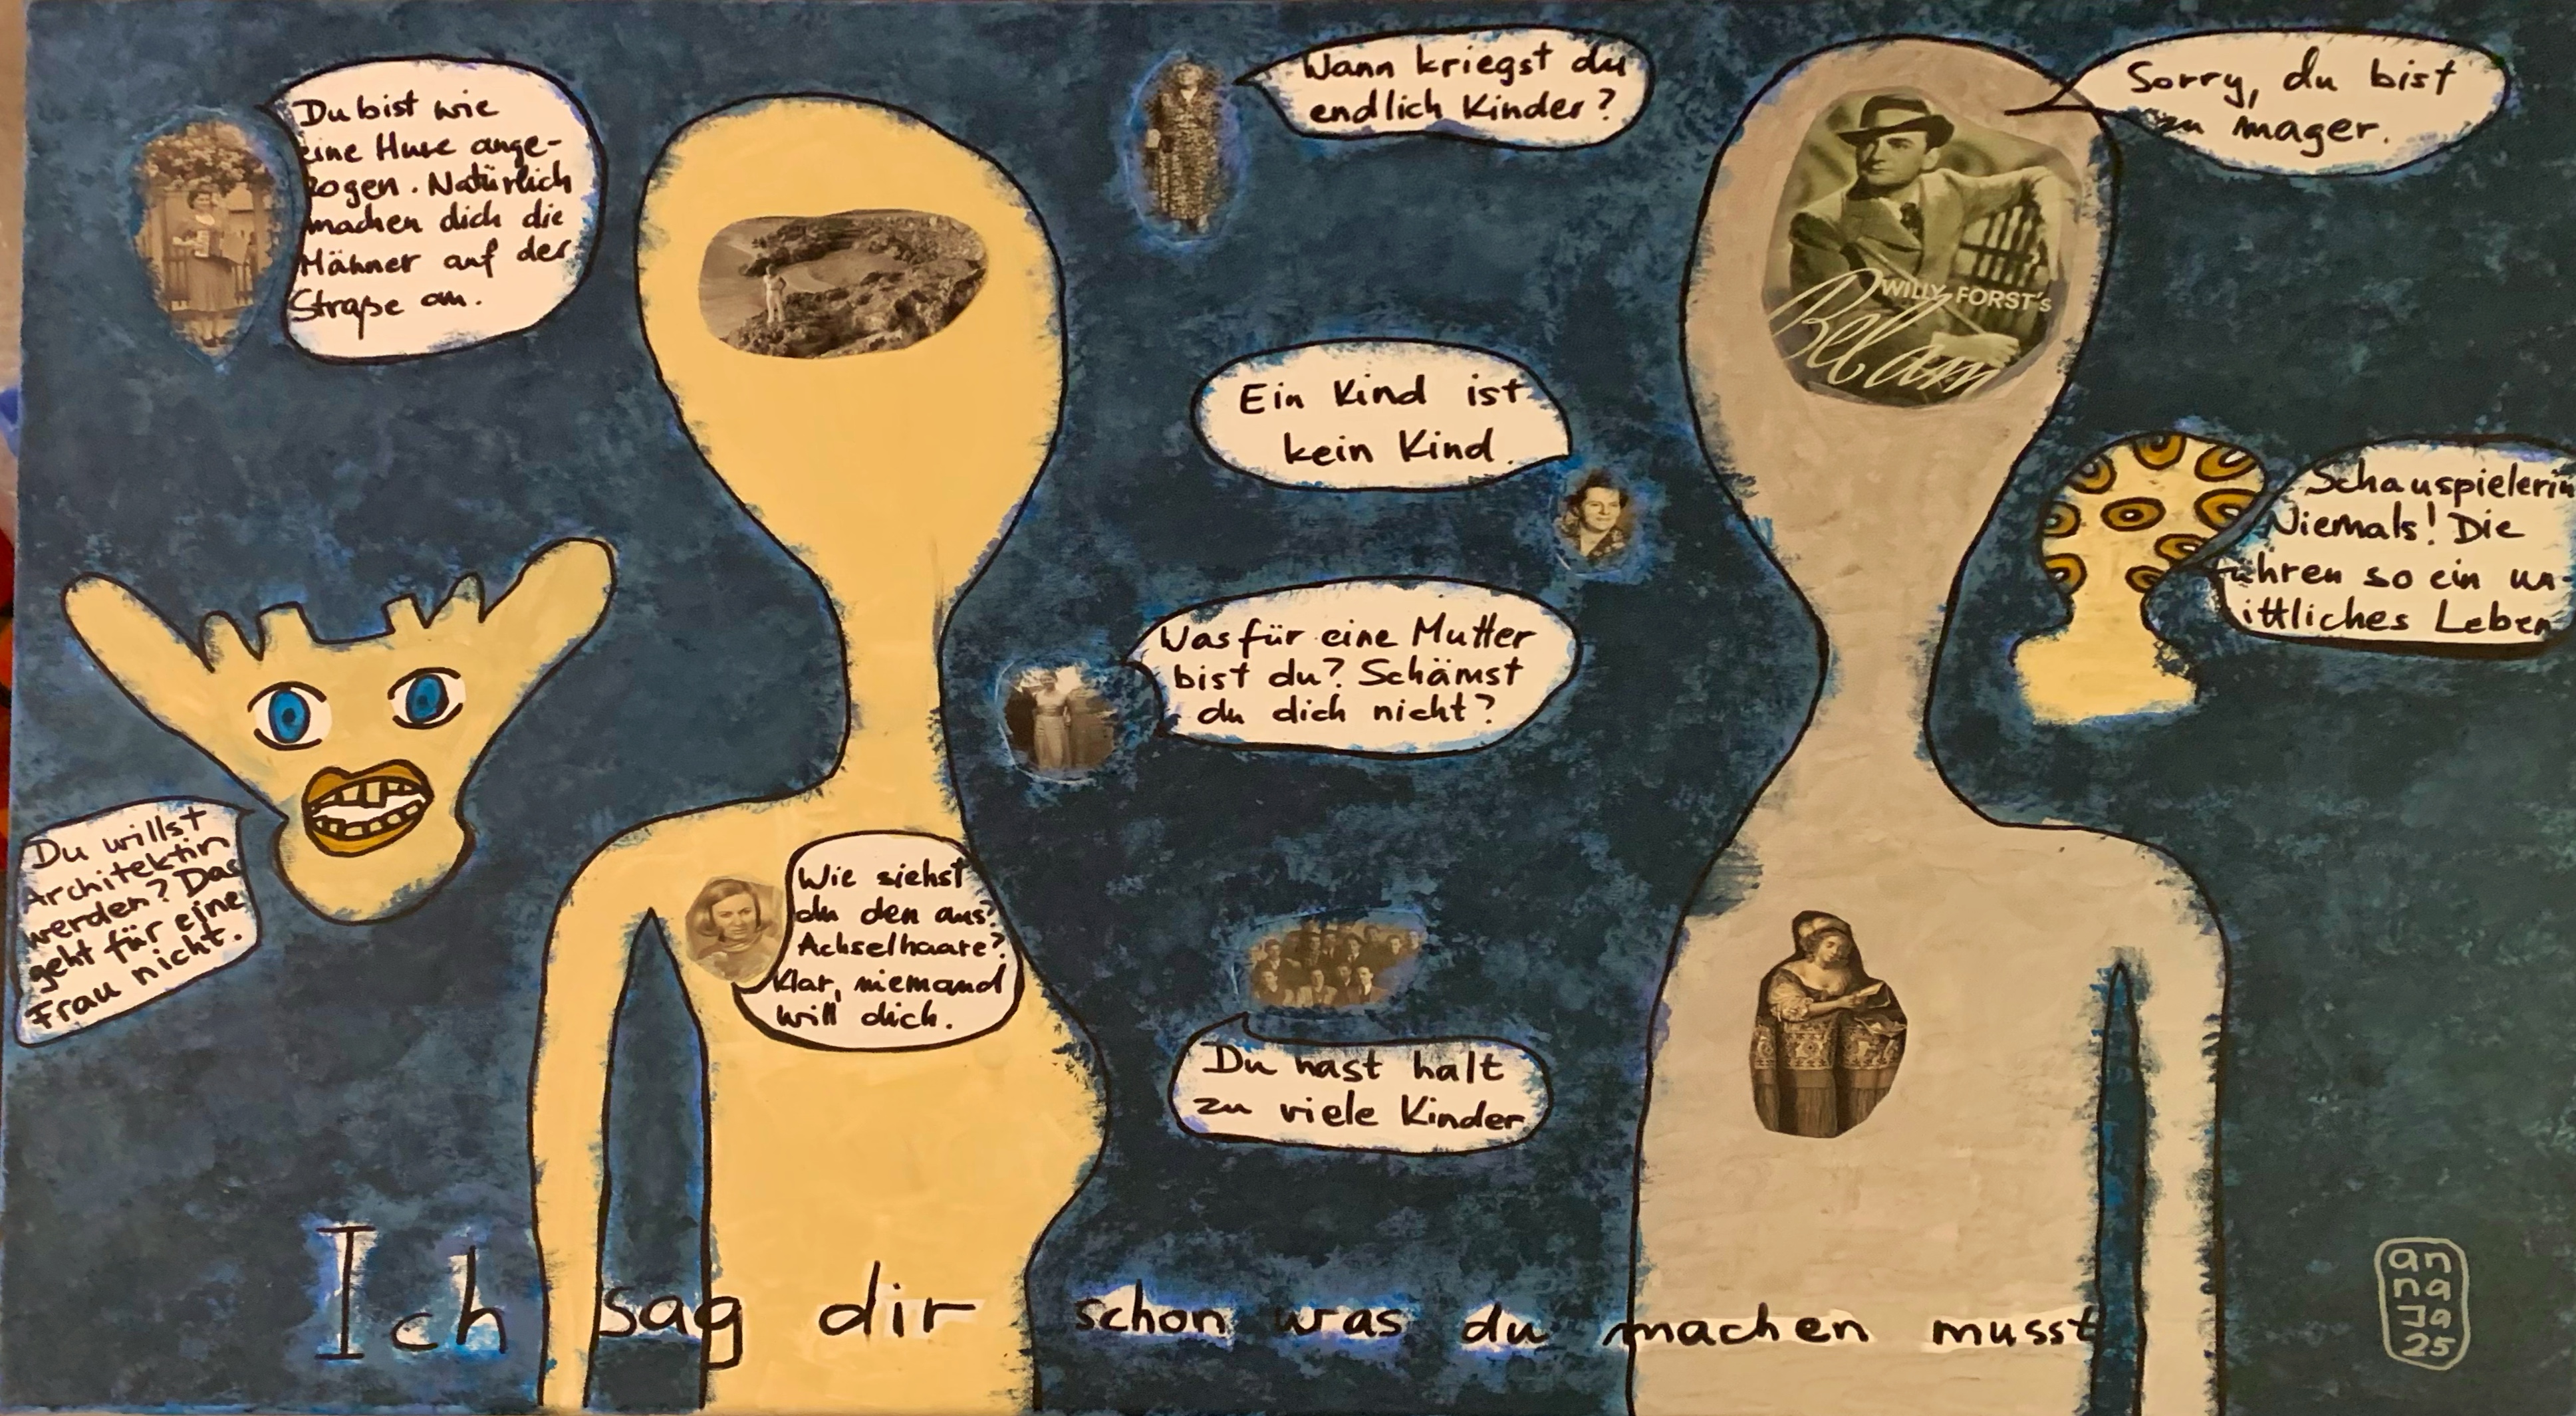 Du bist wie
eine Hure ange-
zogen. Natürlich
machen dich die
Männer auf der
Straße an.
Wann kriegst du
endlich Kinder?
Sorry, du bist
zu mager.
WILLY FORST's
Bel ami
Ein Kind ist
kein Kind.
Schauspielerin
Niemals! Die
führen so ein un
ittliches Leben
Was für eine Mutter
bist du? Schämst
du dich nicht?
Du willst
Architektin
werden? Das
geht für eine
Frau nicht.
Wie siehst
du den aus?
Achselhaare?
Klar, niemand
will dich.
Du hast halt
zu viele Kinder
Ich sag dir schon was du machen musst
an
na
Ja
25